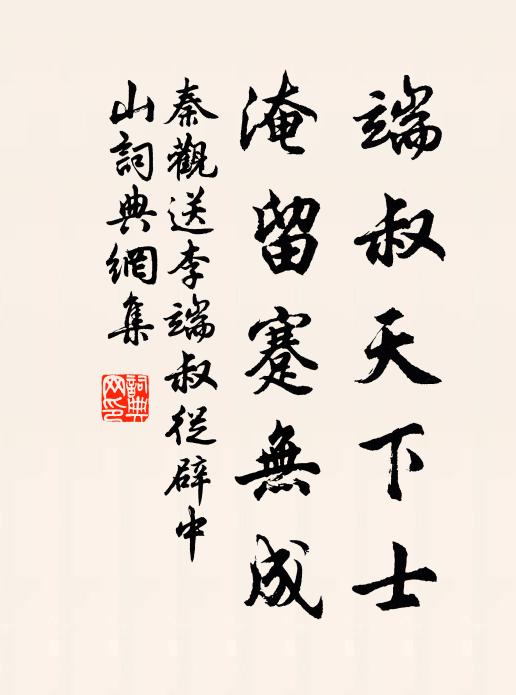 端叔天下士
淹留蹇無成
秦觀送李端叔從辟中
山詞典網集
詞典
网印